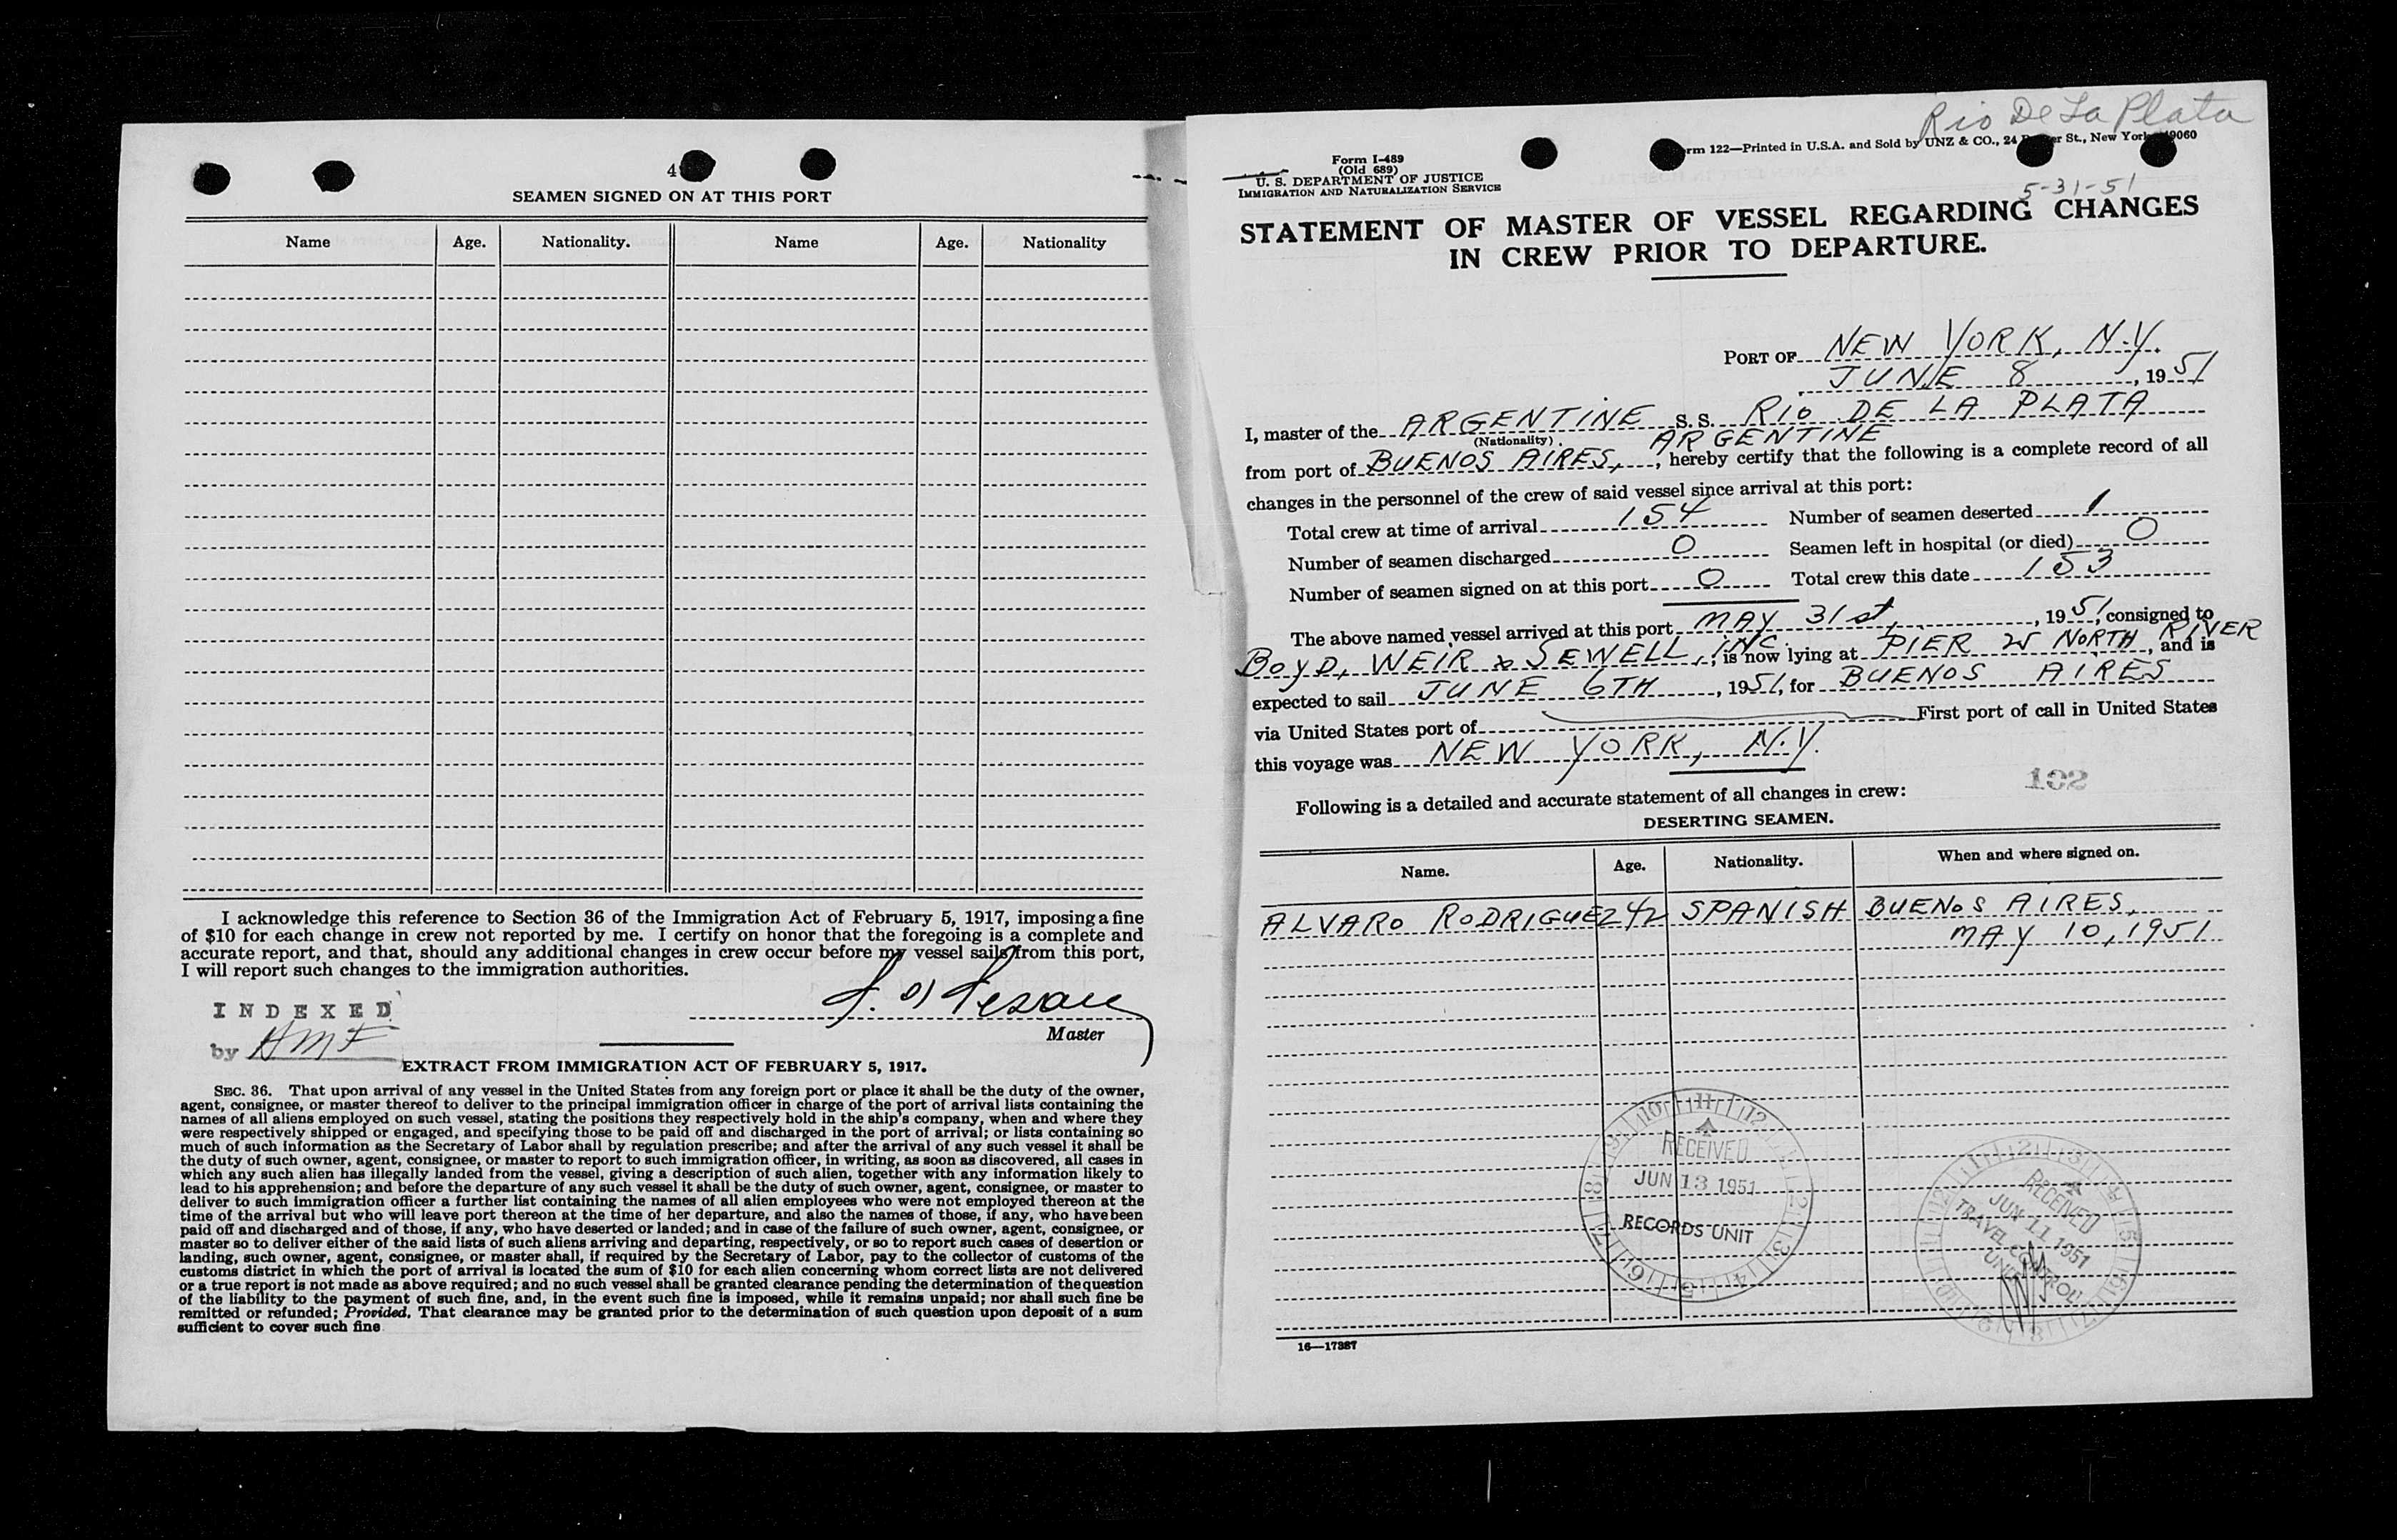 4
SEAMEN SIGNED ON AT THIS PORT
Name Age. Nationality. Name Age. Nationality
I acknowledge this reference to Section 36 of the Immigration Act of February 5, 1917, imposing a fine
of $10 for each change in crew not reported by me. I certify on honor that the foregoing is a complete and
accurate report, and that, should any additional changes in crew occur before my vessel sails from this port,
I will report such changes to the immigration authorities.
INDEXED
by HMF
Master
EXTRACT FROM IMMIGRATION ACT OF FEBRUARY 5, 1917.
SEC. 36. That upon arrival of any vessel in the United States from any foreign port or place it shall be the duty of the owner,
agent, consignee, or master thereof to deliver to the principal immigration officer in charge of the port of arrival lists containing the
names of all aliens employed on such vessel, stating the positions they respectively hold in the ship's company, when and where they
were respectively shipped or engaged, and specifying those to be paid off and discharged in the port of arrival; or lists containing so
much of such information as the Secretary of Labor shall by regulation prescribe; and after the arrival of any such vessel it shall be
the duty of such owner, agent, consignee, or master to report to such immigration officer, in writing, as soon as discovered, all cases in
which any such alien has illegally landed from the vessel, giving a description of such alien, together with any information likely to
lead to his apprehension; and before the departure of any such vessel it shall be the duty of such owner, agent, consignee, or master to
deliver to such immigration officer a further list containing the names of all alien employees who were not employed thereon at the
time of the arrival but who will leave port thereon at the time of her departure, and also the names of those, if any, who have been
paid off and discharged and of those, if any, who have deserted or landed; and in case of the failure of such owner, agent, consignee, or
master so to deliver either of the said lists of such aliens arriving and departing, respectively, or so to report such cases of desertion or
landing, such owner, agent, consignee, or master shall, if required by the Secretary of Labor, pay to the collector of customs of the
customs district in which the port of arrival is located the sum of $10 for each alien concerning whom correct lists are not delivered
or a true report is not made as above required; and no such vessel shall be granted clearance pending the determination of the question
of the liability to the payment of such fine, and, in the event such fine is imposed, while it remains unpaid; nor shall such fine be
remitted or refunded; Provided, That clearance may be granted prior to the determination of such question upon deposit of a sum
sufficient to cover such fine
Rio De La Plata
rm 122—Printed in U.S.A. and Sold by UNZ & CO., 24 er St., New York 9060
Form I-489
(Old 689)
U. S. DEPARTMENT OF JUSTICE
IMMIGRATION AND NATURALIZATION SERVICE
5-31-51
STATEMENT OF MASTER OF VESSEL REGARDING CHANGES
IN CREW PRIOR TO DEPARTURE.
PORT OF NEW YORK, N.Y.
JUNE 8, 1951
I, master of the ARGENTINE S. S. RIO DE LA PLATA
(Nationality) ARGENTINE
from port of BUENOS AIRES, , hereby certify that the following is a complete record of all
changes in the personnel of the crew of said vessel since arrival at this port:
Total crew at time of arrival 154 Number of seamen deserted 1
Number of seamen discharged 0 Seamen left in hospital (or died) 0
Number of seamen signed on at this port 0 Total crew this date 153
The above named vessel arrived at this port MAY 31st, , 1951, consigned to
BOYD, WEIR & SEWELL, INC., is now lying at PIER 25 NORTH RIVER, and is
expected to sail JUNE 6TH, 1951, for BUENOS AIRES
via United States port of First port of call in United States
this voyage was NEW YORK, N.Y.
102
Following is a detailed and accurate statement of all changes in crew:
DESERTING SEAMEN.
Name. Age. Nationality. When and where signed on.
ALVARO RODRIGUEZ 42 SPANISH BUENOS AIRES,
MAY 10, 1951
RECEIVED
JUN 13 1951
RECORDS UNIT
RECEIVED
JUN 11 1951
TRAVEL CONTROL
UNIT
16—17387